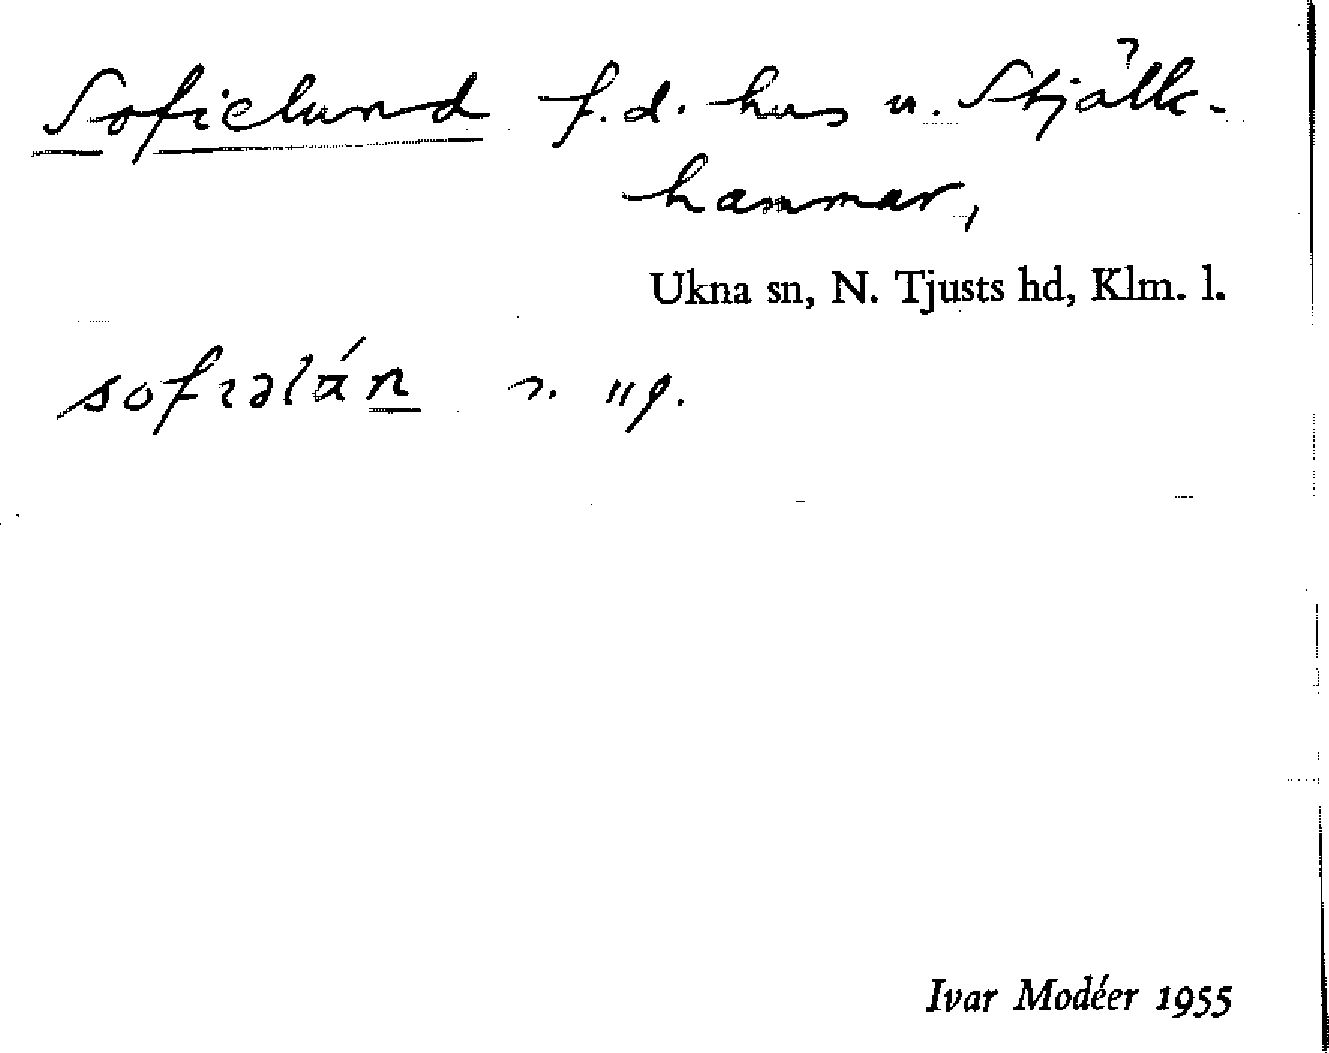 Sofielund f.d. hus u. Stjälk-
hammar,
Ukna sn, N. Tjusts hd, Klm. l.
sofıəlán
Ivar Modéer 1955